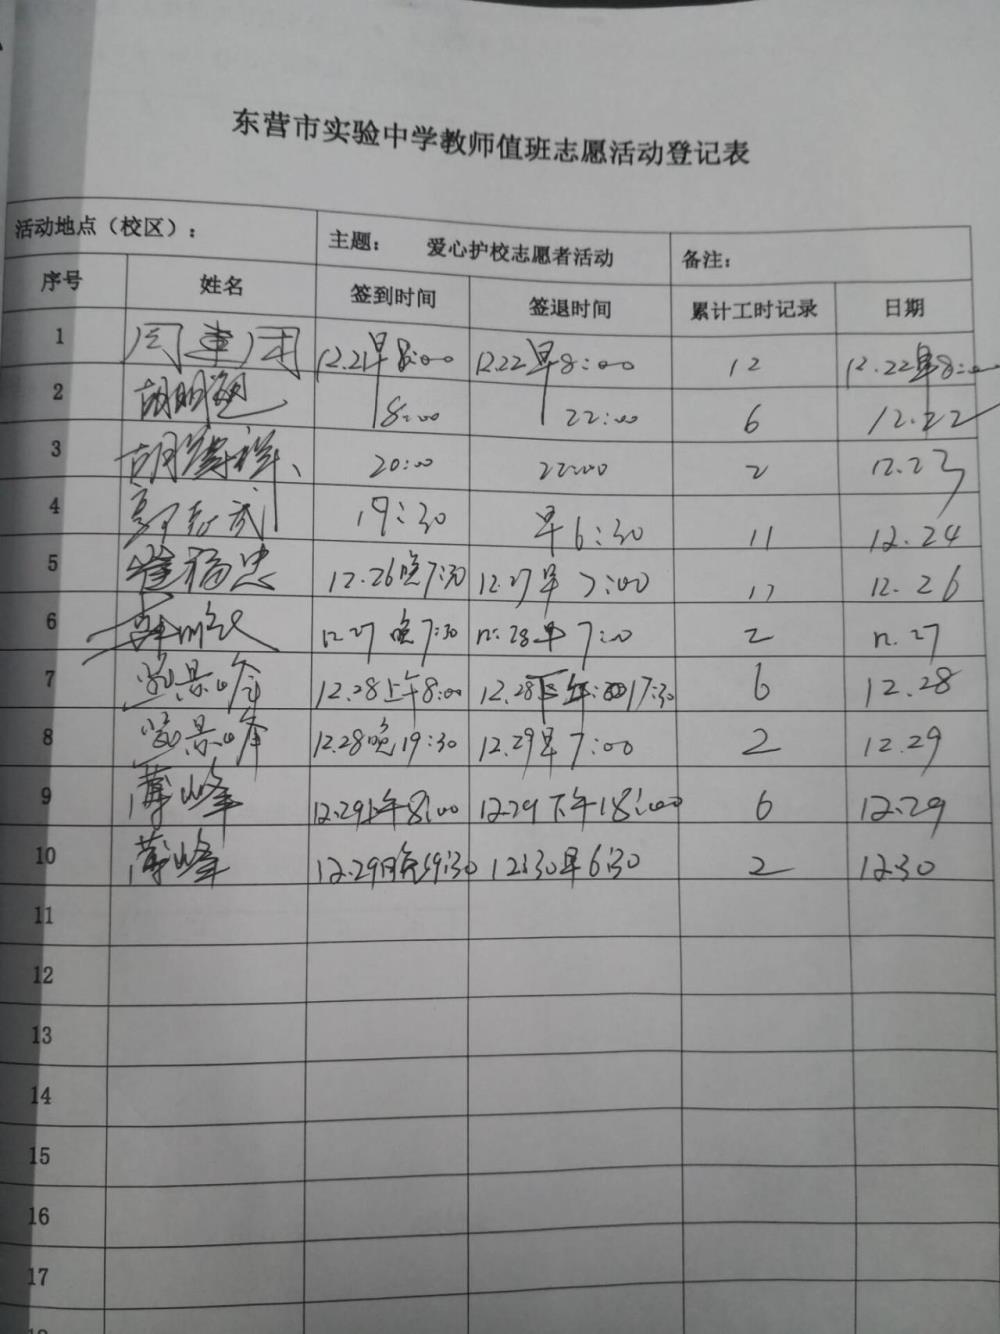 东营市实验中学教师值班志愿活动登记表
活动地点（校区）： 主题： 爱心护校志愿者活动 备注：
序号 姓名 签到时间 签退时间 累计工时记录 日期
1 12.21早8:00 12.22早8:00 12 12.22早8:00
2 8:00 22:00 6 12.22
3 20:00 22:00 2 12.23
4 19:30 早6:30 11 12.24
5 崔福忠 12.26晚7:30 12.27早7:00 12.26
6 12.27晚7:30 12.28早7:00 2 12.27
7 12.28上午8:00 12.28下午17:30 6 12.28
8 12.28晚19:30 12.29早7:00 2 12.29
9 薄峰 12.29上午8:00 12.29下午18:00 6 12.29
10 薄峰 12.29晚19:30 12.30早6:30 2 12.30
11
12
13
14
15
16
17